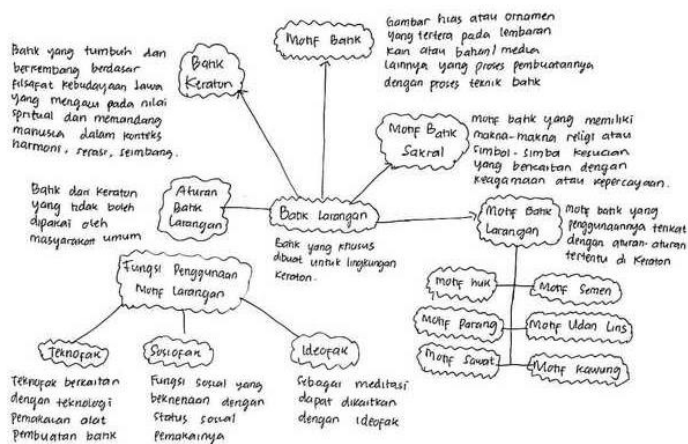 Batik yang tumbuh dan
berkembang berdasar
filsafat kebudayaan Jawa
yang mengacu pada nilai
spritual dan memandang
manusia dalam konteks
harmoni, serasi, seimbang.
Batik
Keraton
Motif Batik
Gambar hias atau ornamen
yang tertera pada lembaran
kain atau bahan/media
lainnya yang proses pembuatannya
dengan proses teknik batik
Motif Batik
Sakral
motif batik yang memiliki
makna-makna religi atau
simbol-simbol kesucian
yang berkaitan dengan
keagamaan atau kepercayaan.
Batik dari Keraton
yang tidak boleh
dipakai oleh
masyarakat umum
Aturan
Batik
Larangan
Batik Larangan
Batik yang khusus
dibuat untuk lingkungan
Keraton.
Motif Batik
Larangan
Motif batik yang
penggunaannya terikat
dengan aturan-aturan
tertentu di Keraton
Motif huk
Motif Semen
Motif Parang
Motif Udan Liris
Motif Sawat
Motif Kawung
Fungsi Penggunaan
Motif Larangan
Teknofak
Sosiofak
Ideofak
Teknofak berkaitan
dengan teknologi
pemakaian alat
pembuatan batik
Fungsi sosial yang
berkenaan dengan
status sosial
pemakainya
Sebagai meditasi
dapat dikaitkan
dengan Ideofak